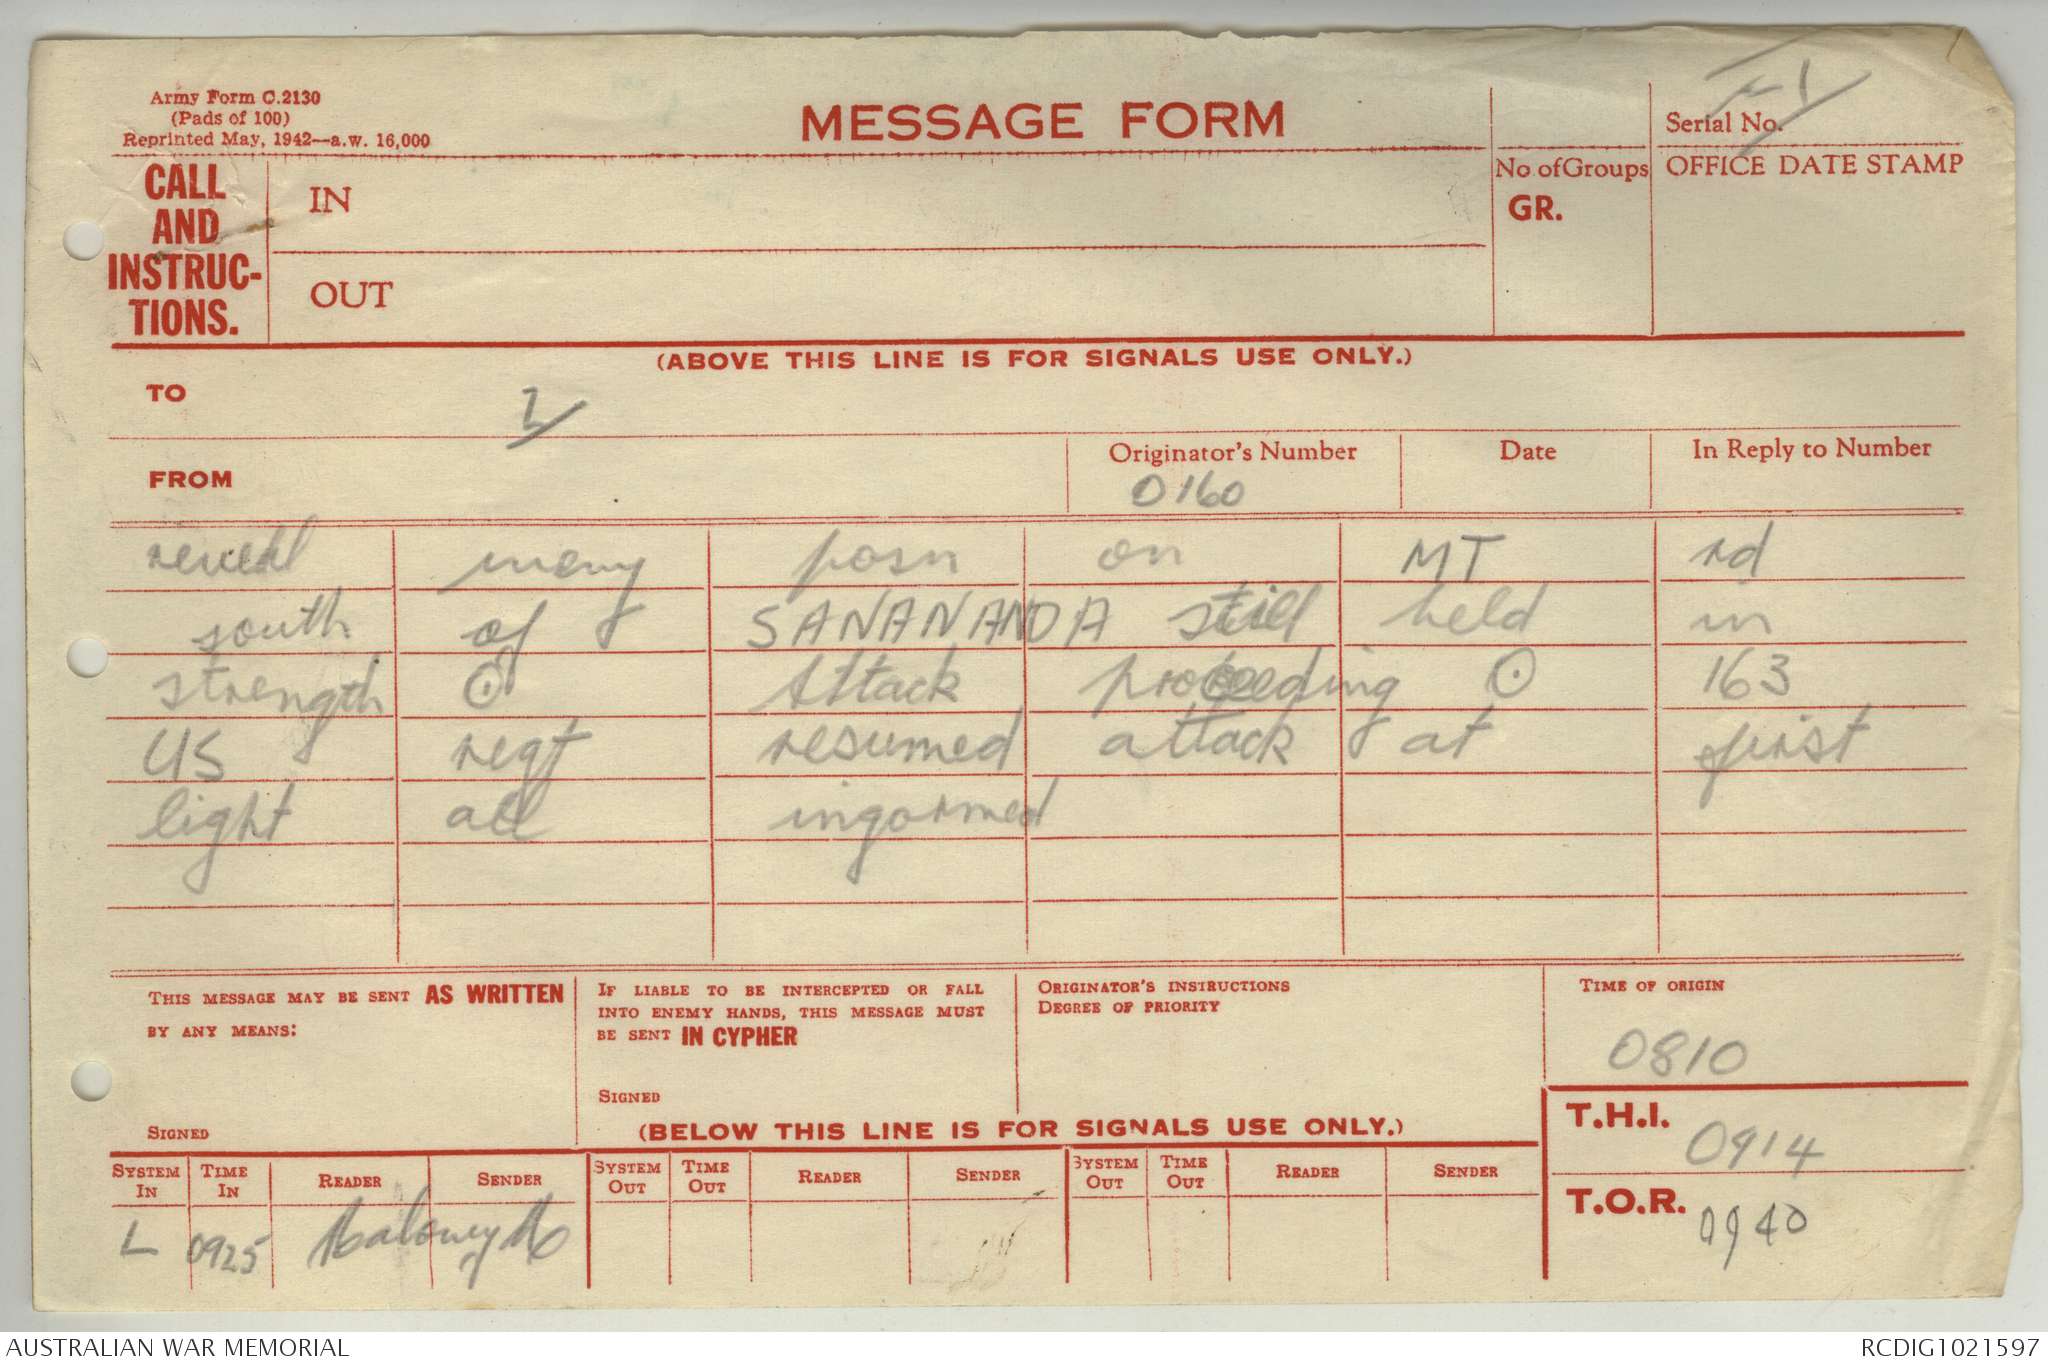 Army Form C.2130
(Pads of 100)
Reprinted May, 1942—a.w. 16,000
MESSAGE FORM
Serial No.
CALL AND INSTRUC-TIONS.
IN
OUT
No. of Groups
GR.
OFFICE DATE STAMP
(ABOVE THIS LINE IS FOR SIGNALS USE ONLY.)
TO
2
FROM
Originator's Number
0160
Date
In Reply to Number
reveal enemy posn on MT rd
south of SANANANDA still held in
strength ⊙ Attack proceeding ⊙ 163
US regt resumed attack at first
light all informed
THIS MESSAGE MAY BE SENT AS WRITTEN
BY ANY MEANS:
SIGNED
IF LIABLE TO BE INTERCEPTED OR FALL
INTO ENEMY HANDS, THIS MESSAGE MUST
BE SENT IN CYPHER
SIGNED
ORIGINATOR'S INSTRUCTIONS
DEGREE OF PRIORITY
TIME OF ORIGIN
0810
(BELOW THIS LINE IS FOR SIGNALS USE ONLY.)
T.H.I. 0914
T.O.R. 0940
SYSTEM IN TIME IN READER SENDER SYSTEM OUT TIME OUT READER SENDER SYSTEM OUT TIME OUT READER SENDER
L 0925 Maloney
AUSTRALIAN WAR MEMORIAL
RCDIG1021597